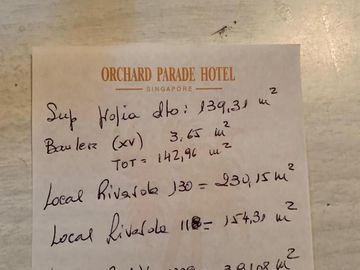 ORCHARD PARADE HOTEL
SINGAPORE
Sup propia dto: 139,31 m²
Baulera (xv) 3,65 m²
TOT = 142,96 m²
Local Rivarola 130 = 230,15 m²
Local Rivarola 118 = 154,31 m²
m²